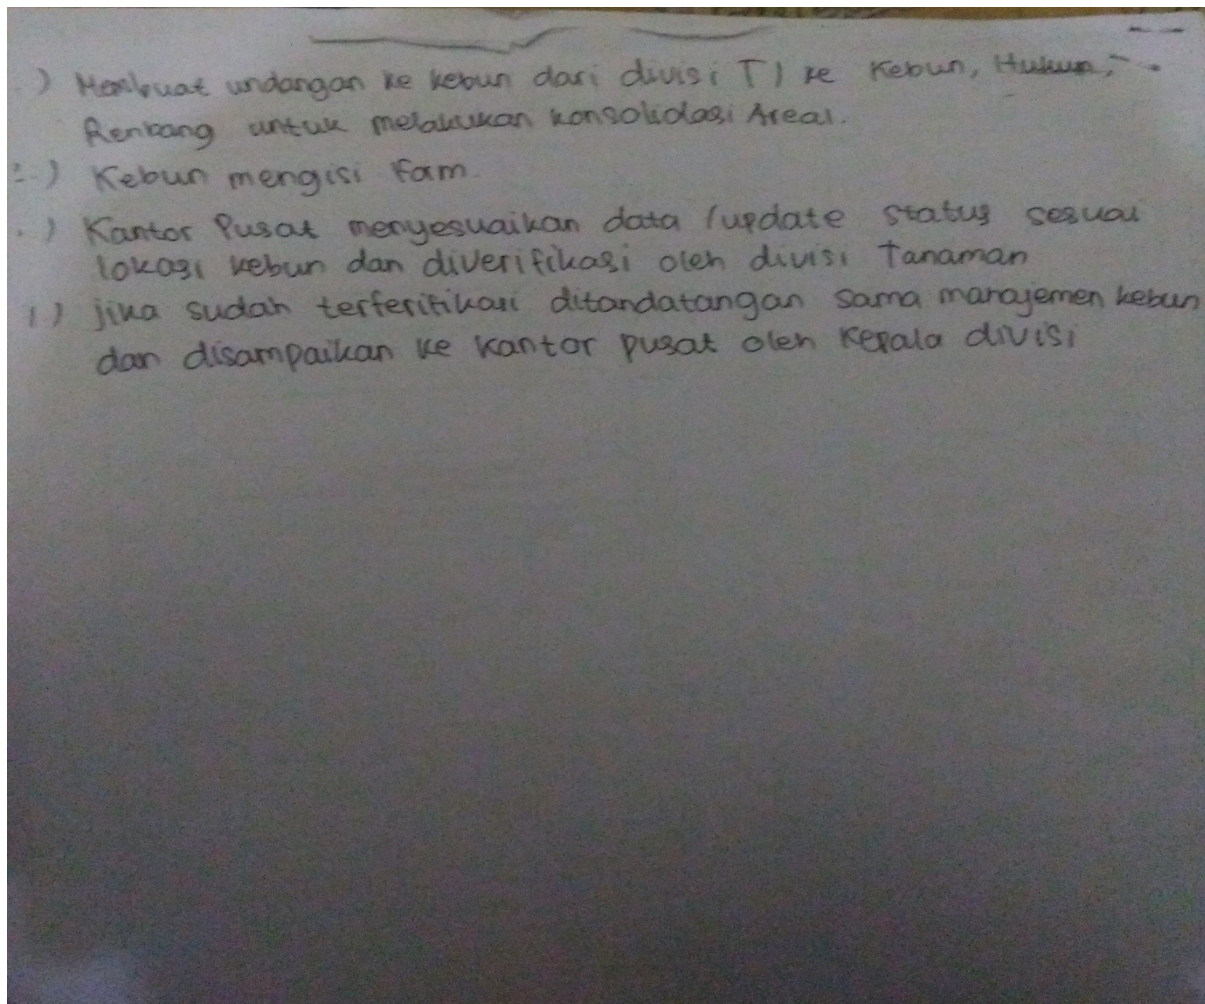 ) Membuat undangan ke kebun dari divisi T) ke Kebun, Hukum,
Renbang untuk melakukan konsolidasi Areal.
2.) Kebun mengisi Form.
.) Kantor Pusat menyesuaikan data / update status sesuai
lokasi kebun dan diverifikasi oleh divisi Tanaman
) jika sudah terferifikasi ditandatangan sama manajemen kebun
dan disampaikan ke kantor pusat oleh Kepala divisi